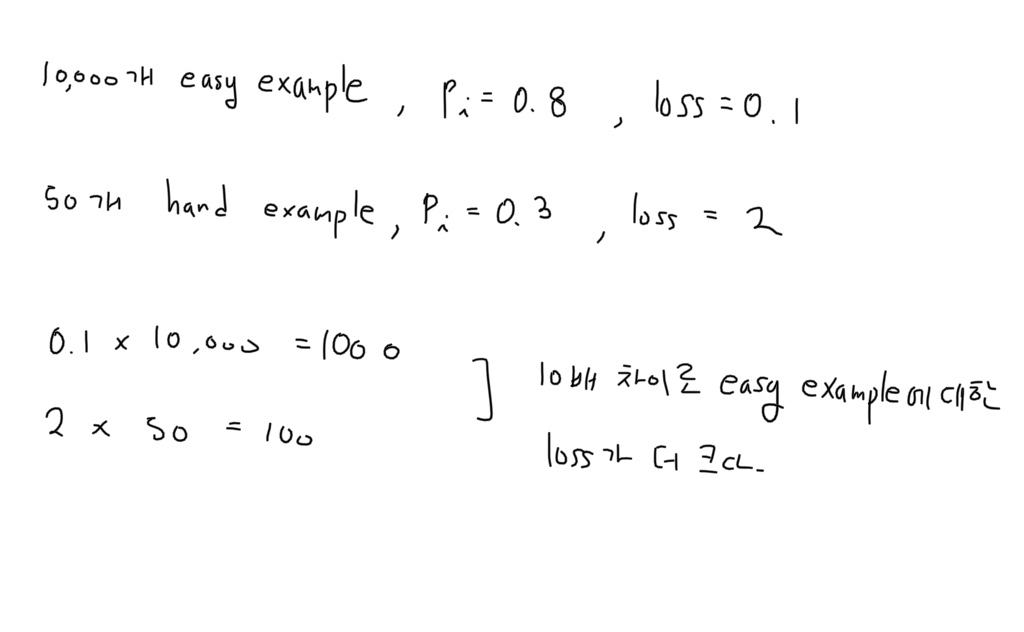 10,000개 easy example, Pi = 0.8, loss = 0.1
50개 hand example, Pi = 0.3, loss = 2
0.1 x 10,000 = 1000
2 x 50 = 100
] 10배 차이로 easy example에 대한
loss가 더 크다.